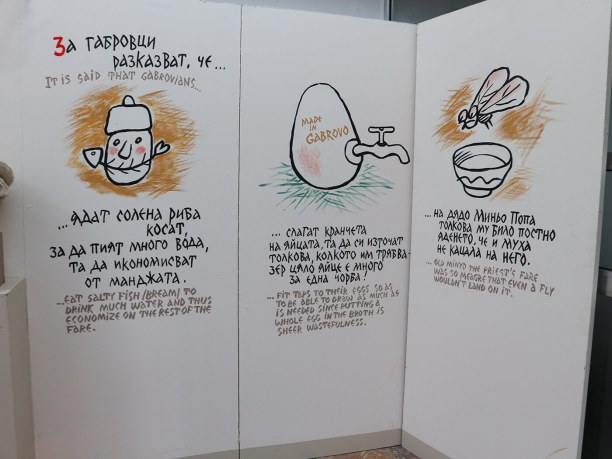 За габровци
разказват, че...
It is said that Gabrovians...
...ядат солена риба
косат,
за да пият много вода,
та да икономисват
от манджата.
...eat salty fish /bream/ to
drink much water and thus
economize on the rest of the
fare.
Made
in
Gabrovo
... слагат кранчета
на яйцата, та да си източат
толкова, колкото им трябва-
зер цяло яйце е много
за една чорба!
... fit taps to their eggs so as
to be able to draw as much as
is needed since putting a
whole egg in the broth is
sheer wastefulness.
... на дядо Миньо Попа
толкова му било постно
яденето, че и муха
не кацала на него.
... old Minyo the Priest's fare
was so meagre that even a fly
wouldn't land on it.